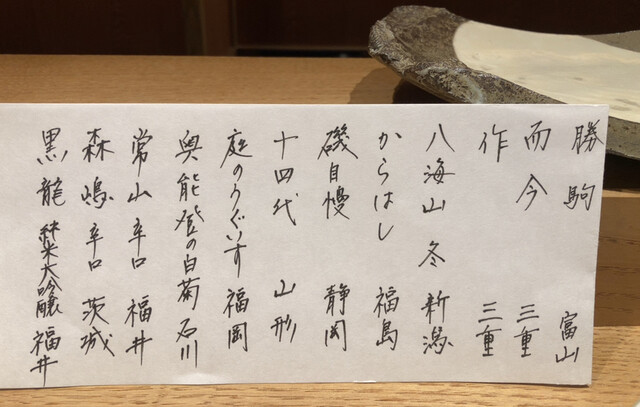 勝駒 富山
而今 三重
作 三重
八海山 冬 新潟
からはし 福島
磯自慢 静岡
十四代 山形
庭のうぐいす 福岡
奥能登の白菊 石川
常山 辛口 福井
森嶋 辛口 茨城
黒龍 純米大吟醸 福井